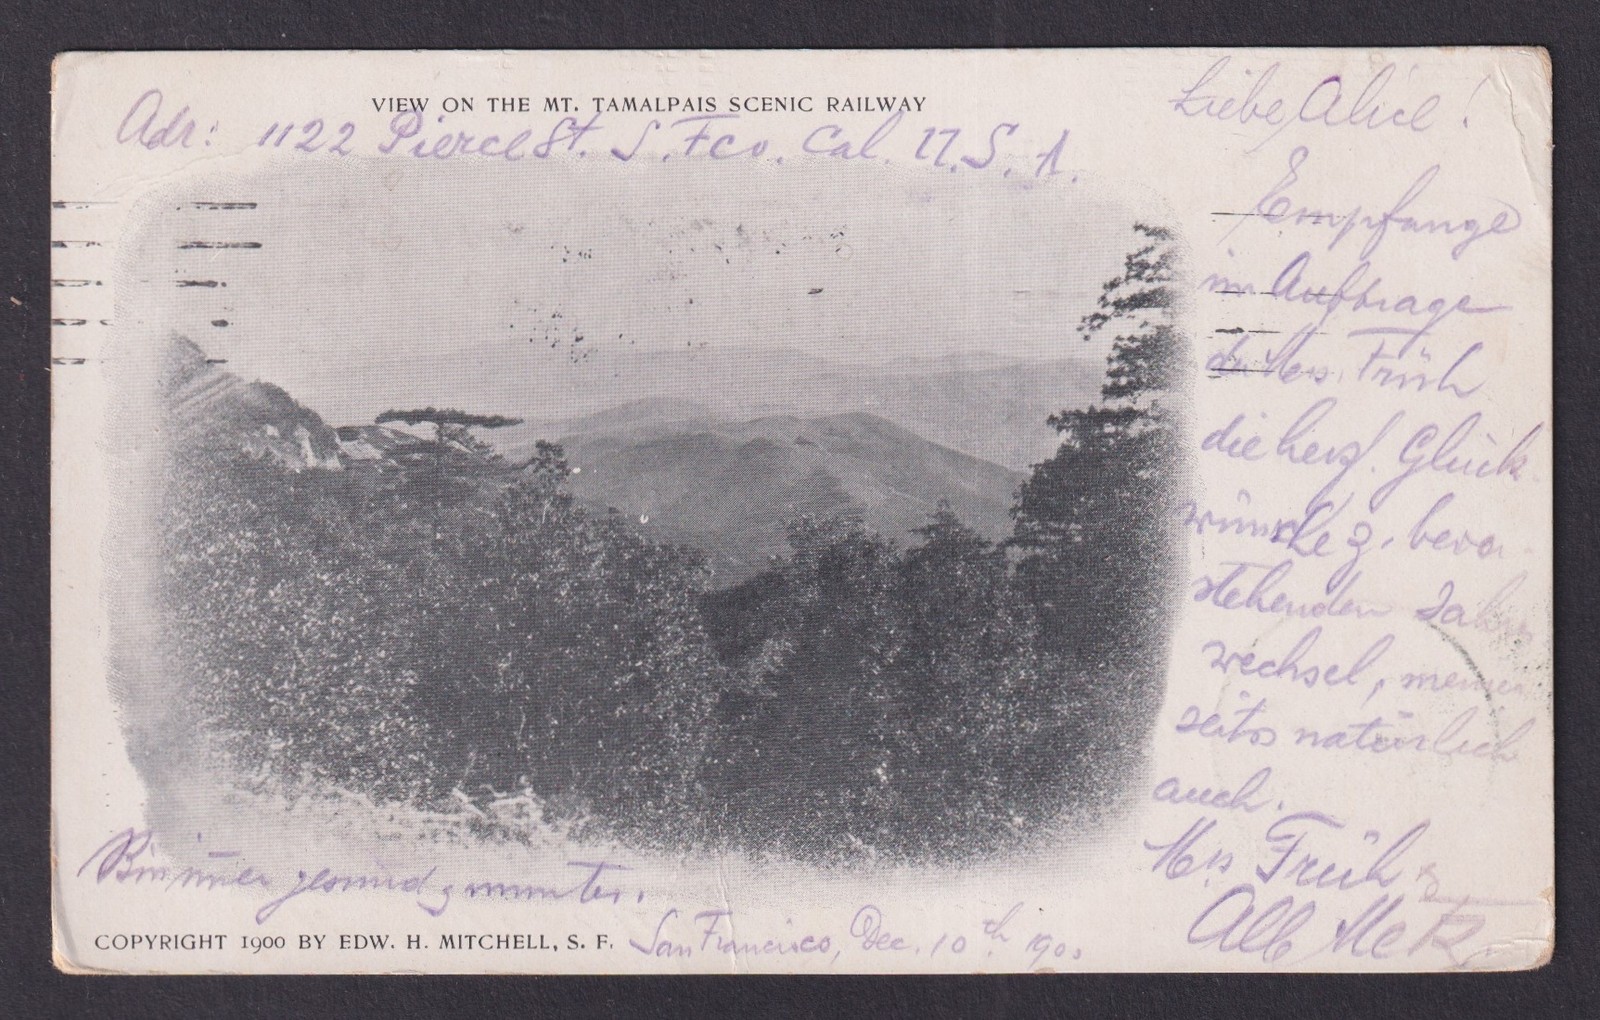 VIEW ON THE MT. TAMALPAIS SCENIC RAILWAY
Adr: 1122 Pierce St. S. Fco. Cal. U.S.A.
Liebe Alice!
Empfange
im Auftrage
Mrs. Früh
die herzl. Glück-
wünsche z. bevor-
stehenden Jahres
wechsel, meiner
seits natürlich
auch.
Mrs Früh &
Alb
Bin immer gesund & munter.
COPYRIGHT 1900 BY EDW. H. MITCHELL, S. F.
San Francisco, Dec. 10th 190